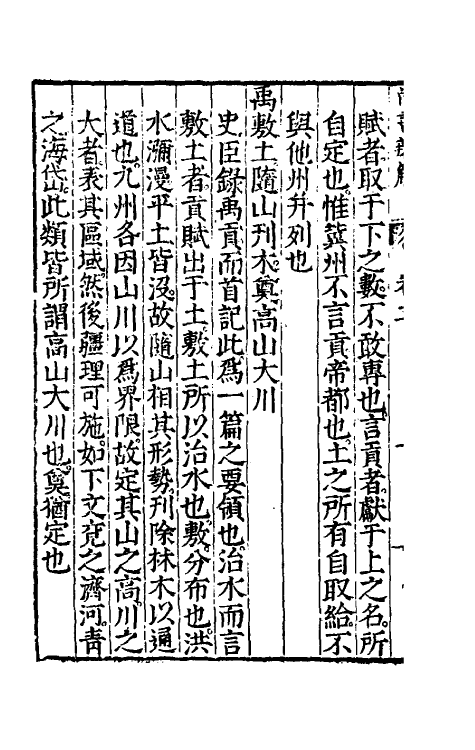 賦者取于下之數。不敢專也。言貢者。獻于上之名。所
自定也。惟冀州不言貢。帝都也。土之所有自取給。不
與他州并列也
禹敷土。隨山刊木。奠高山大川
史臣錄禹貢。而首記此爲一篇之要領也。治水而言
敷土者。貢賦出于土。敷土所以治水也。敷。分布也。洪
水瀰漫平土皆没。故隨山相其形勢。刊除林木以通
道也。九州各因山川以爲界限。故定其山之高。川之
大者表其區域。然後疆理可施。如下文兗之濟河。青
之海岱。此類皆所謂高山大川也。奠猶定也